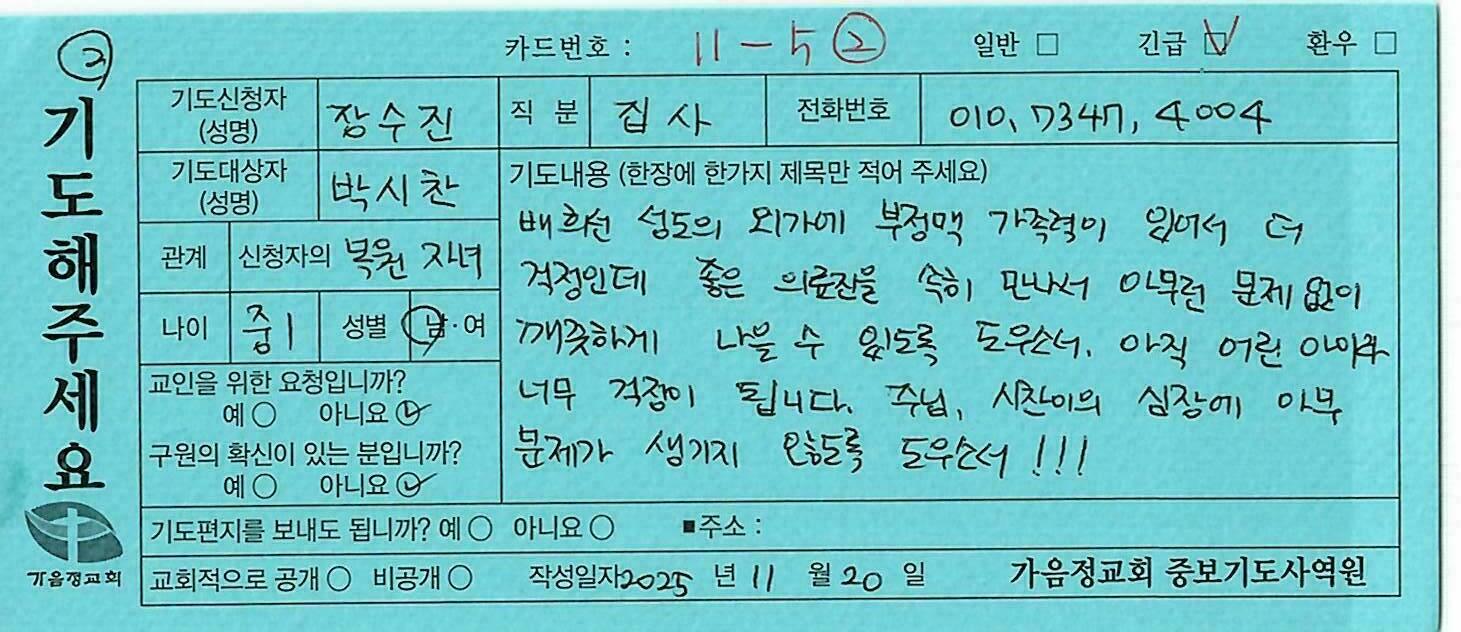 ②
기도해주세요
가음정교회
카드번호 : 11-5 ② 일반 □ 긴급 ☑ 환우 □
기도신청자 (성명) 장수진 직 분 집사 전화번호 010, 7347, 4004
기도대상자 (성명) 박시찬
관계 신청자의 목원 자녀
나이 중1 성별 남·여
교인을 위한 요청입니까?
예 ○ 아니요 ✓
구원의 확신이 있는 분입니까?
예 ○ 아니요 ✓
기도내용 (한장에 한가지 제목만 적어 주세요)
배희선 성도의 외가에 부정맥 가족력이 있어서 더
걱정인데 좋은 의료진을 속히 만나서 아무런 문제 없이
깨끗하게 나을 수 있도록 도우소서. 아직 어린 아이라
너무 걱정이 됩니다. 주님, 시찬이의 심장에 아무
문제가 생기지 않도록 도우소서!!!
기도편지를 보내도 됩니까? 예 ○ 아니요 ○ ■주소 :
교회적으로 공개 ○ 비공개 ○ 작성일자 2025 년 11 월 20 일 가음정교회 중보기도사역원